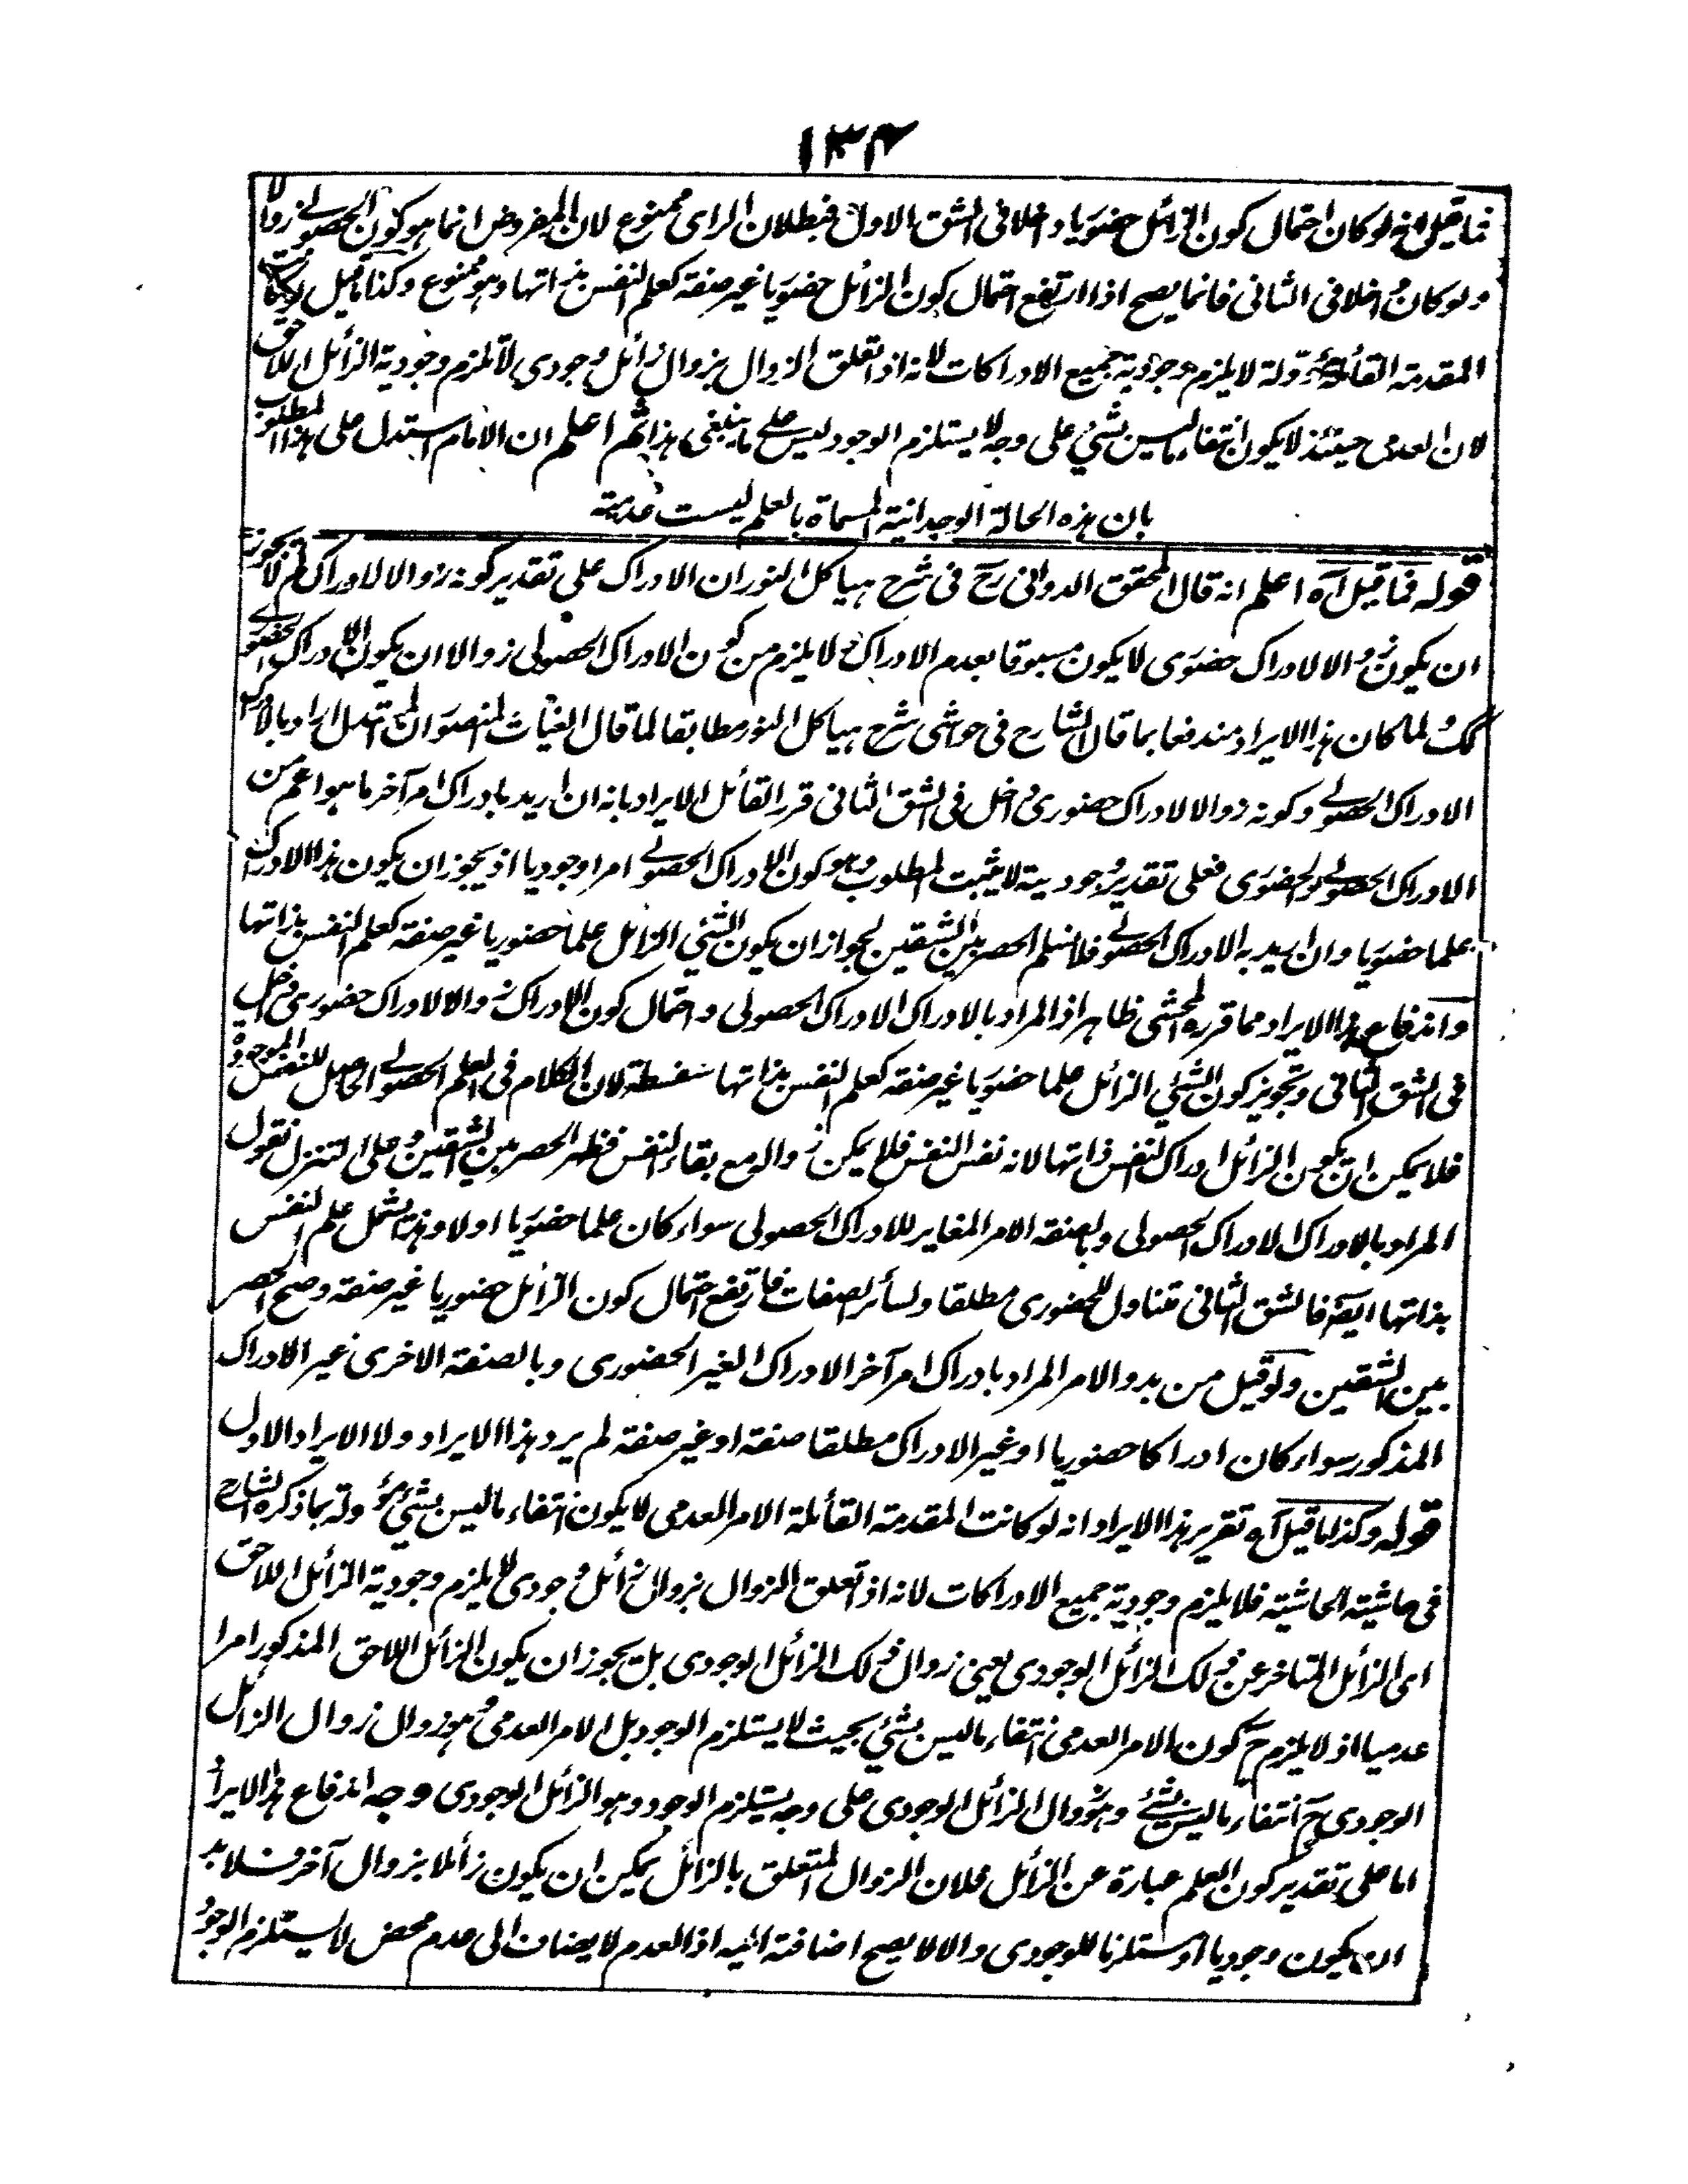 ١٣٤
فما قيل انه لو كان احتمال كون الزائل حضوريا داخلا فى الشق الاول فبطلان الراى ممنوع لان المفروض انما هو كون الحصولے زوالا
ولو كان داخلا فى الثانى فانما يصح اذا ارتفع احتمال كون الزائل حضوريا غير صفة كعلم النفس بذاتها وهو ممنوع وكذا ما قيل لو كانت
المقدمة القائلة مؤولة لا يلزم وجودية جميع الادراكات لانه اذا تعلق الزوال بزوال زائل وجودى لا يلزم وجودية الزائل اللاحق
لان العدمى حينئذ لا يكون انتفاء ما ليس بشئ على وجه لا يستلزم الوجود ليس على ما ينبغى هذا ثم اعلم ان الامام استدل على هذا المطلوب
بان هذه الحالة الوجدانية المسماة بالعلم ليست عدمية
قوله فما قيل آه اعلم انه قال المحقق الدوانى رح فى شرح هياكل النور ان الادراك على تقدير كونه زوالا لادراك لم لا يجوز
ان يكون زوالا لادراك حضورى لا يكون مسبوقا بعدم الادراك ولا يلزم من كون الادراك الحصولى زوالا ان يكون الادراك الحضورے
كك ولما كان هذا الايراد مندفعا بما قال الشارح فى حواشى شرح هياكل النور مطابقا لما قال الغياث المنصور ان المستدل اراد بالادراك
الادراك الحصولے وكونه زوالا لادراك حضورى داخل فى الشق الثانى قرر القائل الايراد بانه ان اريد بادراك امر آخر ما هو اعم من
الادراك الحصولے والحضورى فعلى تقدير وجوديته لا يثبت المطلوب وهو كون الادراك الحصولے امرا وجوديا اذ يجوز ان يكون هذا الادراك
علما حضوريا وان اريد به الادراك الحصولے فلا نسلم الحصر بين الشقين لجواز ان يكون الشئ الزائل علما حضوريا غير صفة كعلم النفس بذاتها
واندفاع هذا الايراد مما قرره المحشى ظاهر اذ المراد بالادراك الادراك الحصولى واحتمال كون الادراك زوالا لادراك حضورى داخل
فى الشق الثانى وتجويز كون الشئ الزائل علما حضوريا غير صفة كعلم النفس بذاتها سفسطة لان الكلام فى العلم الحصولے الحاصل للنفس الموجودة
فلا يمكن ان يكون الزائل ادراك النفس ذاتها لانه نفس النفس فلا يمكن زواله مع بقاء النفس فظهر الحصر بين الشقين وعلى التنزل نقول
المراد بالادراك الادراك الحصولى وبالصفة الامر المغاير للادراك الحصولى سواء كان علما حضوريا اولا وهذا يشمل علم النفس
بذاتها ايضا فالشق الثانى متناول للحضورى مطلقا ولسائر الصفات فارتفع احتمال كون الزائل حضوريا غير صفة وصح الحصر
بين الشقين ولو قيل من بدو الامر المراد بادراك امر آخر الادراك الغير الحضورى وبالصفة الاخرى غير الادراك
المذكور سواء كان ادراكا حضوريا او غير الادراك مطلقا صفة او غير صفة لم يرد هذا الايراد ولا الايراد الاول
قوله وكذا ما قيل آه تقرير هذا الايراد انه لو كانت المقدمة القائلة الامر العدمى لا يكون انتفاء ما ليس بشئ مؤولة بما ذكره الشارح
فى حاشية الحاشية فلا يلزم وجودية جميع الادراكات لانه اذا تعلق الزوال بزوال زائل وجودى لا يلزم وجودية الزائل اللاحق
اى الزائل المتاخر عن ذلك الزائل الوجودى يعنى زوال ذلك الزائل الوجودى بل يجوز ان يكون الزائل اللاحق المذكور امرا
عدميا اذ لا يلزم ح كون الامر العدمى انتفاء ما ليس بشئ بحيث لا يستلزم الوجود بل الامر العدمى وهو زوال زوال الزائل
الوجودى ح انتفاء ما ليس بشئ وهو زوال الزائل الوجودى على وجه يستلزم الوجود وهو الزائل الوجودى وجه اندفاع هذا الايراد
اما على تقدير كون العلم عبارة عن الزائل فلان الزوال المتعلق بالزائل يمكن ان يكون زائلا بزوال آخر فلا بد
ان يكون وجوديا او مستلزما للوجودى والا لا يصح اضافته اليه اذ العدم لا يضاف الى عدم محض لا يستلزم الوجود